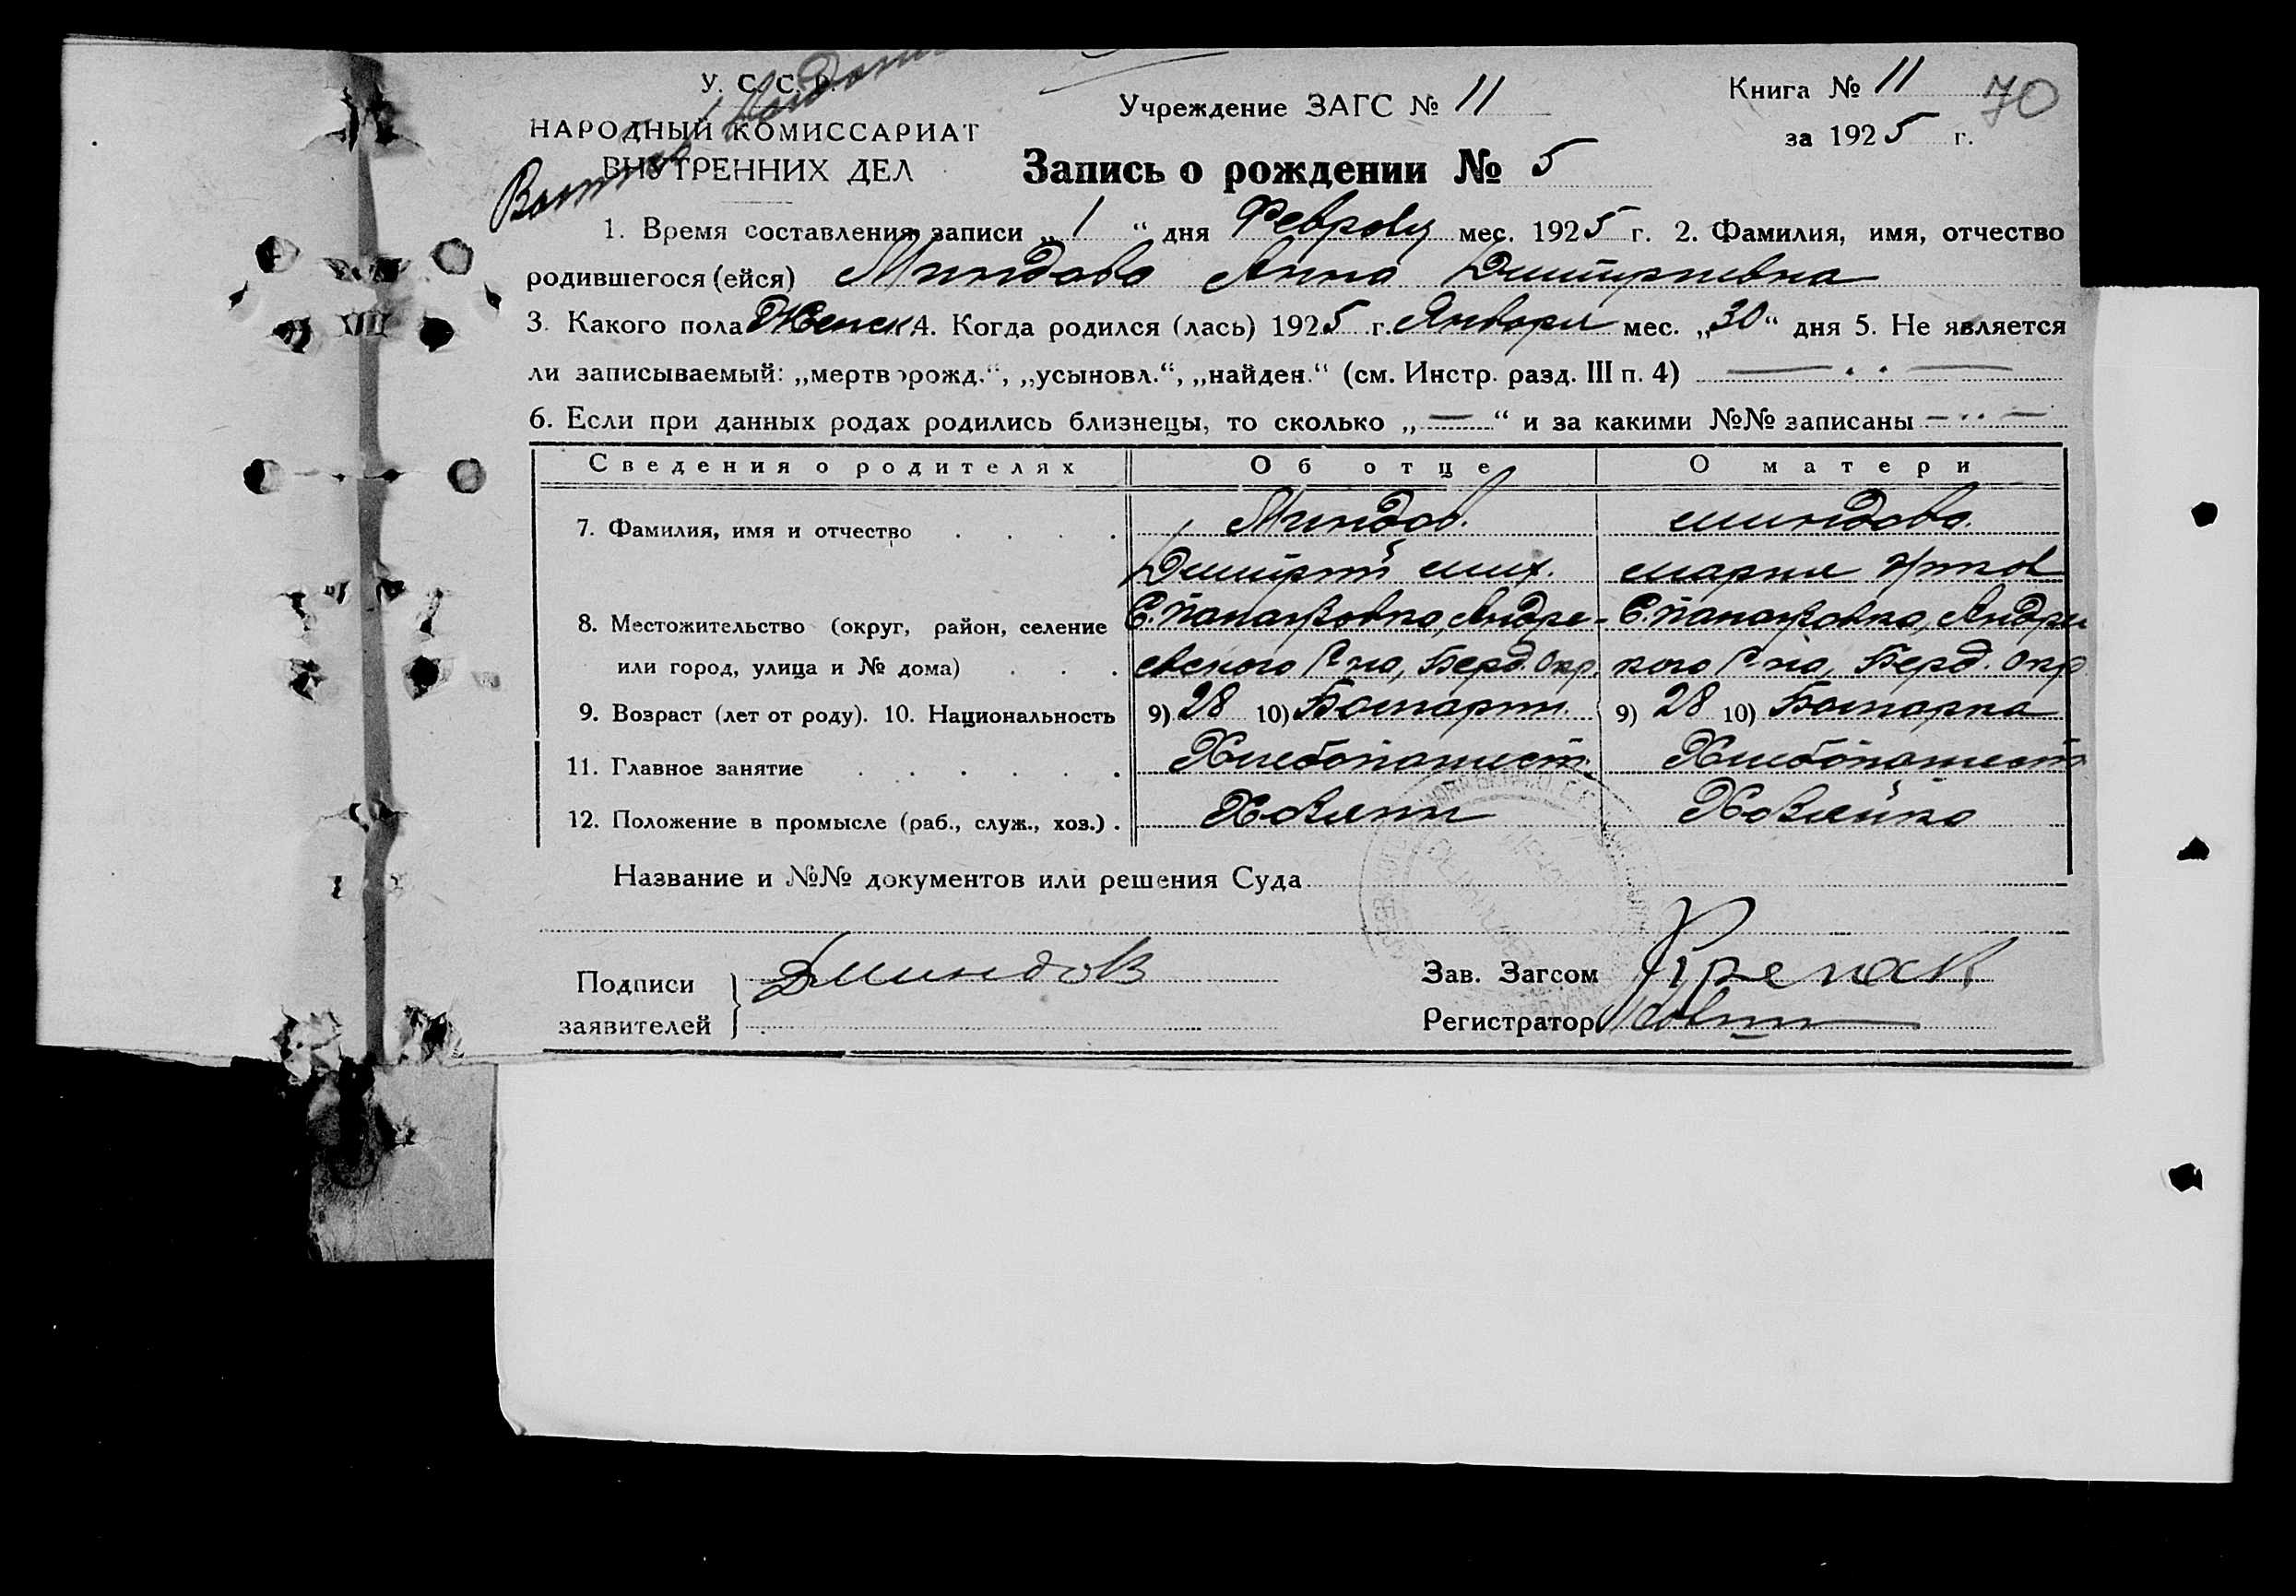 У. С. С. Р.
НАРОДНЫЙ КОМИССАРИАТ
ВНУТРЕННИХ ДЕЛ
Учреждение ЗАГС № 11
Книга № 11 70
за 1925 г.
Запись о рождении № 5
1. Время составления записи „1“ дня Февраля мес. 1925 г. 2. Фамилия, имя, отчество
родившегося (ейся) Миндова Анна Дмитриевна
3. Какого пола Женск. 4. Когда родился (лась) 1925 г. Января мес. „30“ дня 5. Не является
ли записываемый: „мертворожд.“, „усыновл.“, „найден.“ (см. Инстр. разд. III п. 4) — . . —
6. Если при данных родах родились близнецы, то сколько „—“ и за какими №№ записаны — . . —
Сведения о родителях Об отце О матери
7. Фамилия, имя и отчество Миндов. Миндова.
Дмитрий Мих. Мария
8. Местожительство (округ, район, селение С. Панаиовка, Андре- С. Панаиовка, Андре
или город, улица и № дома) евского Р-на, Берд. Окр. кого Р-на, Берд. Окр
9. Возраст (лет от роду). 10. Национальность 9) 28 10) Болгарин. 9) 28 10) Болгарка
11. Главное занятие Хлебопашест. Хлебопашест
12. Положение в промысле (раб., служ., хоз.) . Хозяин Хозяйка
Название и №№ документов или решения Суда
Подписи заявителей Д Миндов
Зав. Загсом
Регистратор